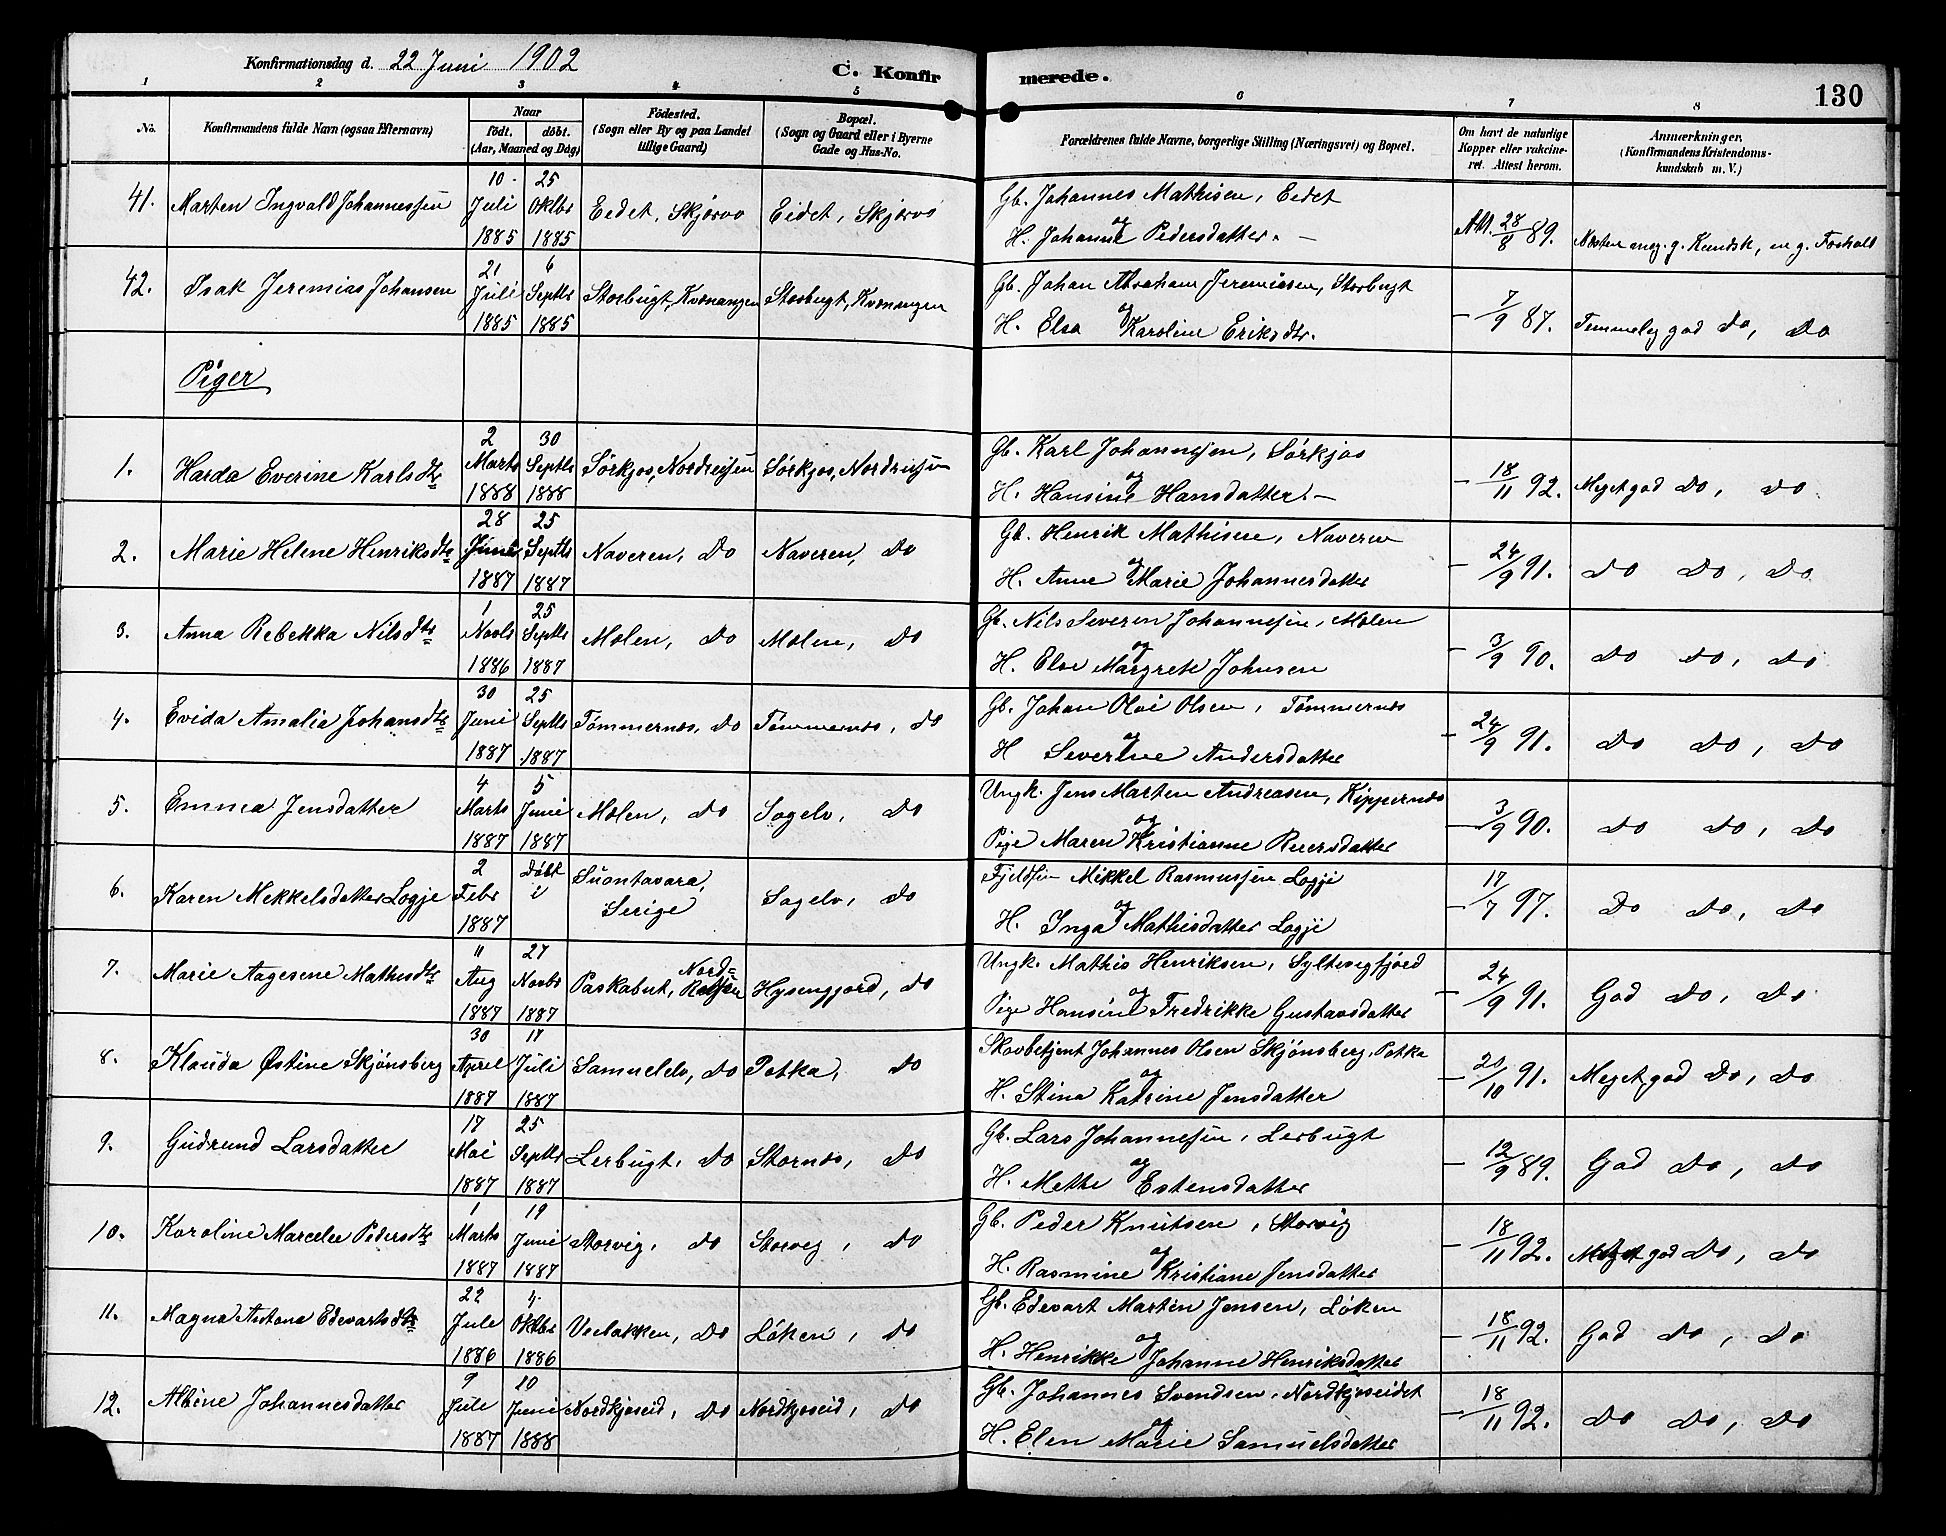 Konfirmationsdag d. 22 Juni 1902
C. Konfirmerede.
130
1 2 3 4 5 6 7 8
No. Konfirmandens fulde Navn (ogsaa Efternavn) Naar født. døbt. (Aar, Maaned og Dag) Fødested. (Sogn eller By og paa Landet tillige Gaard) Bopæl. (Sogn og Gaard eller i Byerne Gade og Hus-No. Forældrenes fulde Navne, borgerlige Stilling (Næringsvei) og Bopæl. Om havt de naturlige Kopper eller vakcineret. Attest herom. Anmærkninger. (Konfirmandens Kristendomskundskab m. V.)
41. Marten Ingvald Johannessen 10 Juli 1885 25 Oktbr 1885 Eedet, Skjærvø Eidet, Skjervø Gb. Johannes Mathisen, Eedet
og H. Johanne Pedersdatter. — Att. 28/8 89. Næsten meg. g. Kundsk, m g. Forhold
42. Isak Jeremias Johansen 21 Juli 1885 6 Septbr 1885 Storbugt, Kvænangen Storbugt, Kvænangen Gb. Johan Abraham Jeremiasen, Storbugt
og H. Elsa Karoline Eriksdtr. — 7/9 87. Temmelig god do, do
Piger
1. Harda Everine Karlsdtr 2 Marts 1888 30 Septbr 1888 Sørkjos, Nordreisen Sørkjos, Nordreisen Gb. Karl Johannesen, Sørkjos
og H. Hansine Hansdatter. — — 18/11 92. Meget god do, do
2. Marie Helene Henriksdtr 28 Juni 1887 25 Septbr 1887 Naveren, do Naveren, do Gb. Henrik Mathisen, Naveren
og H. Anne Marie Johannesdatter — 24/9 91. do do, do
3. Anna Rebekka Nilsdtr 1 Novbr 1886 25 Septbr 1887 Molen, do Molen, do Gb. Nils Severin Johannesen, Molen
og H. Else Margrete Johnsen — 3/9 90. do do, do
4. Evida Amalie Johansdtr 30 Juni 1887 25 Septbr 1887 Tømmernes, do Tømmernes, do Gb. Johan Olai Olsen, Tømmernes
og H Severine Andersdatter — 24/9 91. do do, do
5. Emma Jensdatter 4 Marts 1887 5 Juni 1887 Molen, do Sagelv, do Ungk. Jens Marten Andreasen, Kippernes
og Pige Maren Kristianne Reiersdatter — 3/9 90. do do, do
6. Karen Mekkelsdatter Logje 2 Febr 1887 Døbt i Suontavara, Serige Sagelv, do Fjeldfin Mikkel Rasmussen Logje
og H. Inga Mathisdatter Logje — 17/7 97. do do, do
7. Marie Aagesene Mathisdtr 11 Aug 1887 27 Novbr 1887 Paskabut, Nord-Reisen Hysengjord, do Ungk. Mathis Henriksen, Syltevigfjord
og Pige Hansine Fredrikke Gustavsdatter — 24/9 91. God do, do
8. Klauda Østine Skjønsberg 30 April 1887 17 Juli 1887 Samuelelv, do Potka, do Skovbetjent Johannes Olsen Skjønsberg, Potka
og H. Stina Katrine Jensdatter — 20/10 91. Meget god do, do
9. Gudrund Larsdatter 17 Mai 1887 25 Septbr 1887 Lerbugt, do Stornes, do Gb. Lars Johannesen, Lerbugt
og H. Methe Estensdatter — 12/9 89. God do, do
10. Karoline Marcelie Pedersdtr 1 Marts 1887 19 Juni 1887 Storvig, do Storveg, do Gb. Peder Knutsen, Storvig
og H. Rasmine Kristiane Jensdatter — 18/11 92. Meget god do, do
11. Magna Antona Edevartsdtr 22 Jule 1886 4. Oktbr 1886 Veibakken, do Løken, do Gb. Edevart Martin Jensen, Løken
og H. Henrikke Johanne Henriksdatter — 18/11 92. God do, do
12. Albine Johannesdatter 9 Jule 1887 10 Juni 1888 Nordkjoseid, do Nordkjoseid, do Gb. Johannes Svendsen, Nordkjoseidet
og H. Elen Marie Samuelsdatter — 18/11 92. do do, do